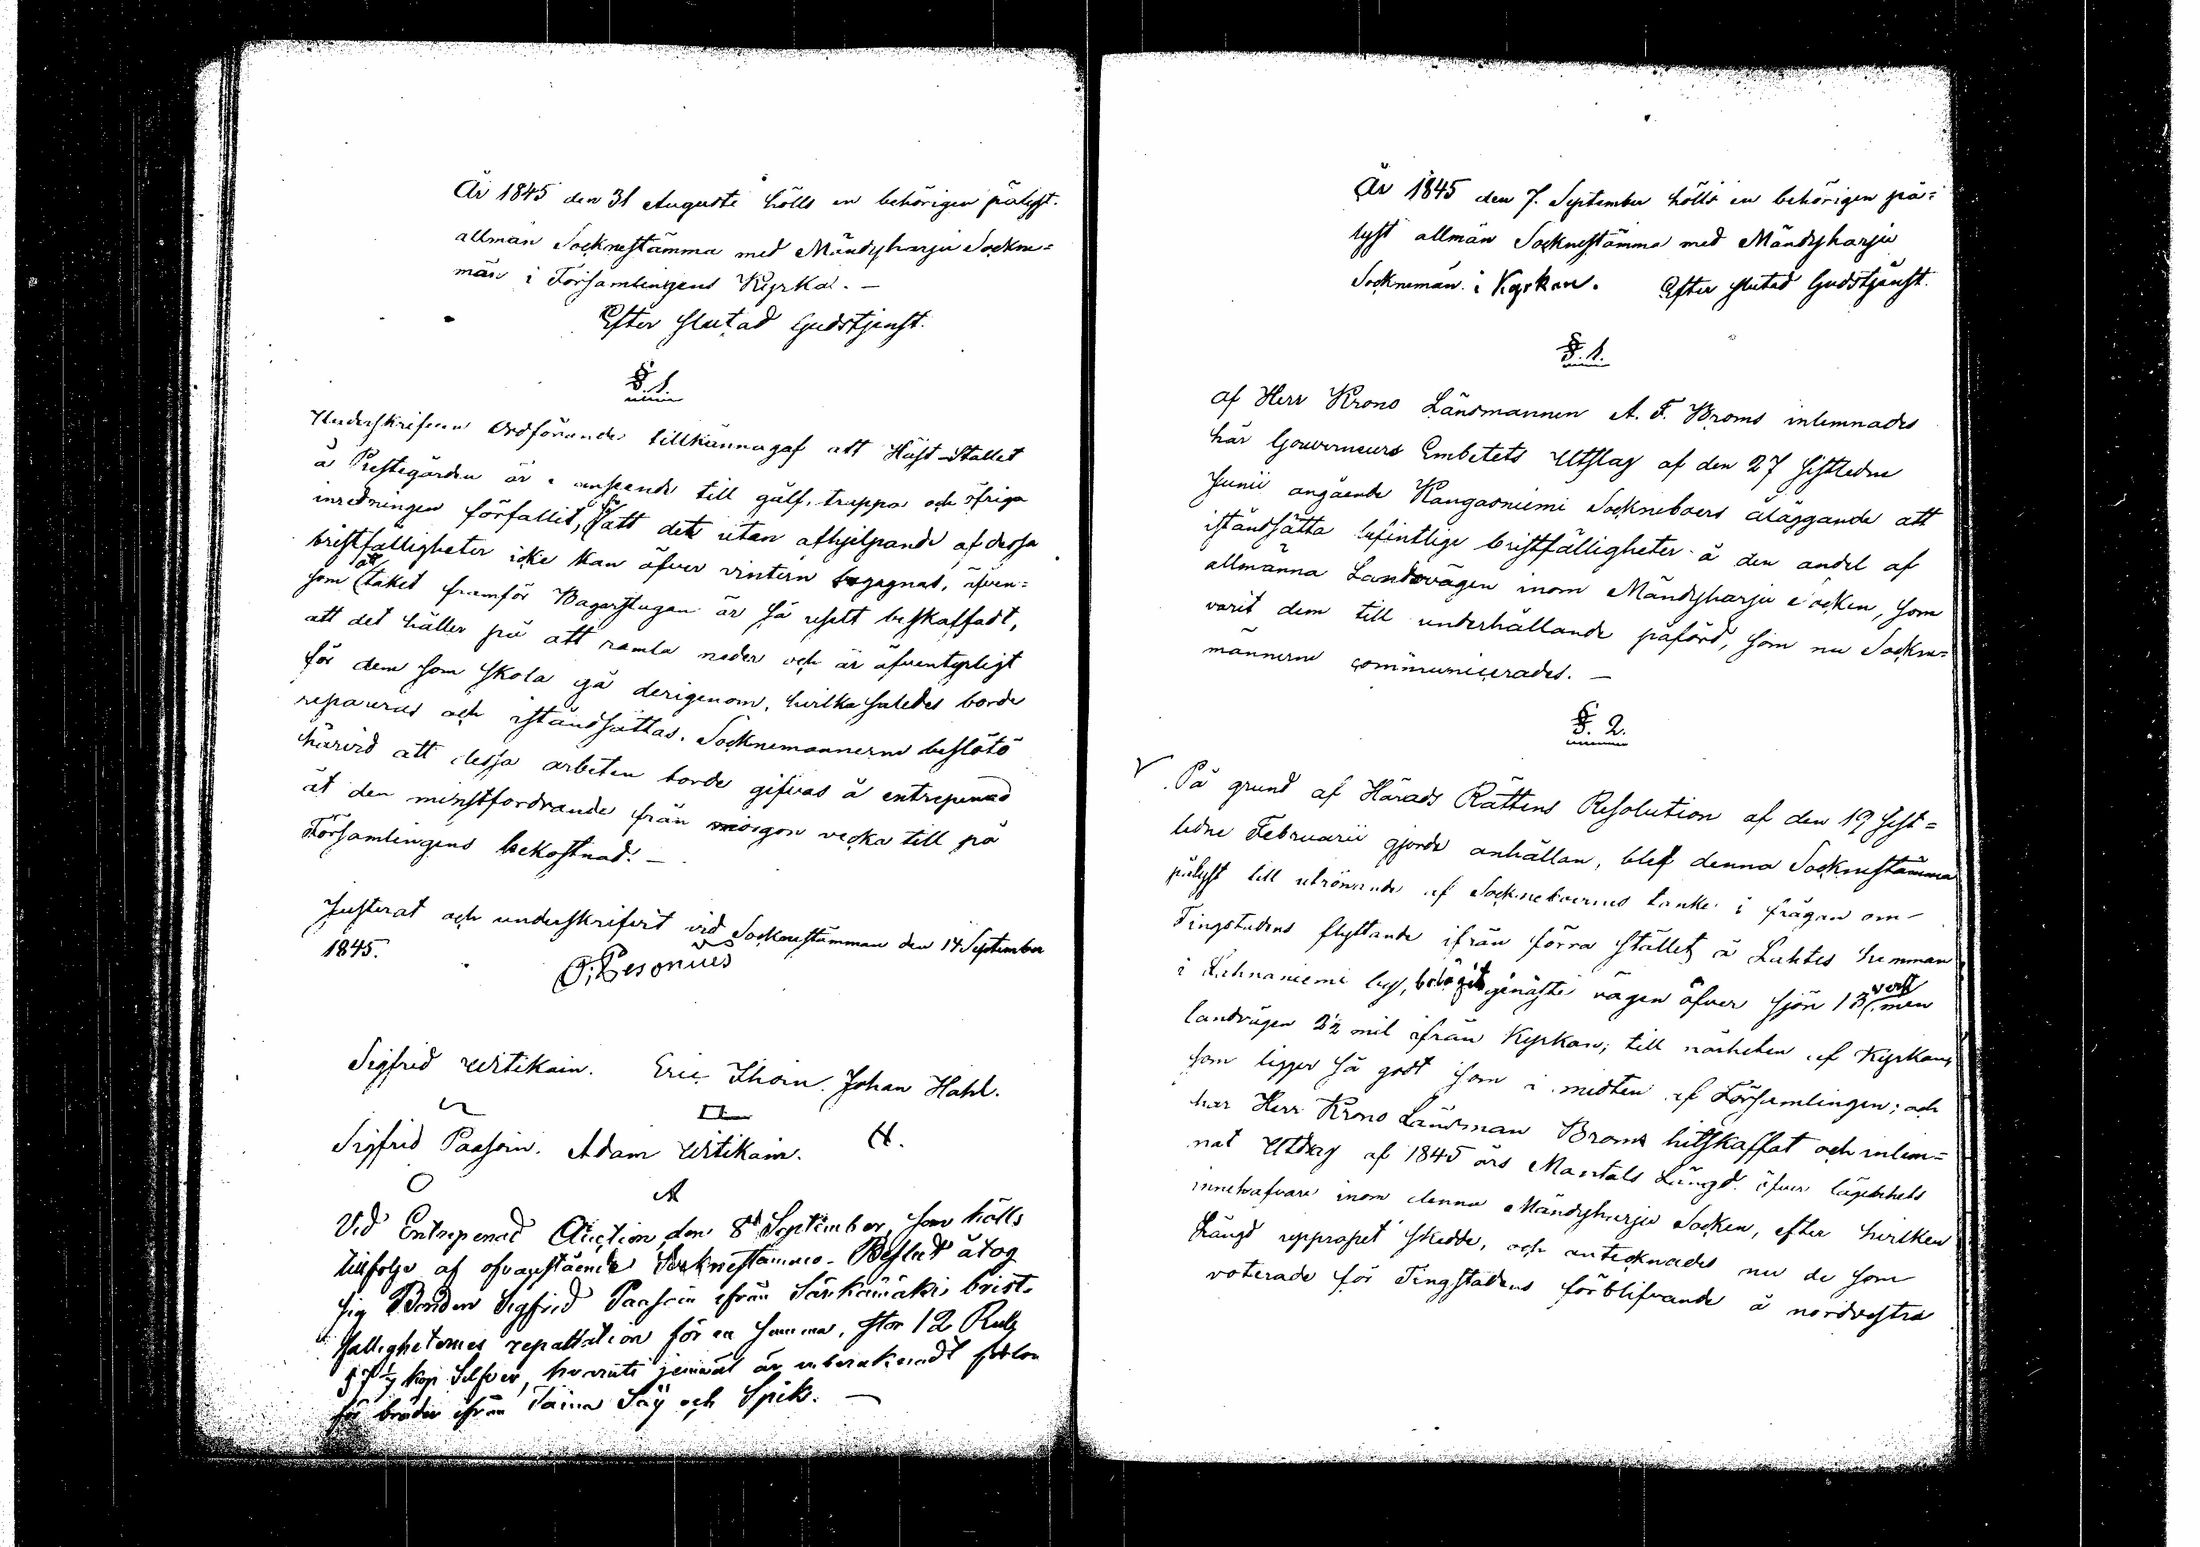 År 1845 den 31 Augusti hölls en behörigen pålyst.
allmän Sockenstämma med Mändyharju Sockne=
män i Församlingens Kyrka. —
Efter slutad Gudstjenst.
§. 1.
Underskrifven Ordförande tillkännagaf att Häst-Stallet
å Prestegården är i anseende till gålf, trappa och öfriga
inredningen förfallit, så att det utan afhjelpande af dessa
bristfälligheter icke kan öfver vintern begagnas, äfven=
som att taket framför Bagarstugan är så uselt beskaffadt,
att det håller på att ramla neder och är äfventyrligt
för dem som skola gå derigenom, hvilka således borde
repareras och iståndsättas. Socknemännerne beslöto
härvid att dessa arbeten borde gifvas å entrepenad
åt den minstfordrande från morgon vecka till på
Församlingens bekostnad. —
Justerat och underskrifvit vid Sockenstämman den 14 September
1845.
P. Pesonius
Sigfrid Utikain. Eric Ihoin. Johan Hahl.
Sigfrid Paasoin. Adam Utikain. H.
A
Vid Entrepenad Auction den 8de September, som hölls
tillfölje af ofvanstående Socknestämmo-Beslut åtog
sig Bonden Sigfrid Paasoin ifrån Särkämäki brist-
fälligheternes reparation för en summa, stor 12 Rub
kop Silfver, hvaruti jemväl är inberäknadt
för bräder ifrån Taina Såg och Spik. —
År 1845 den 7. September hölls en behörigen på=
lyst allmän Socknestämma med Mändyharju
Socknemän i Kyrkan. Efter slutad Gudstjenst.
§. 1.
af Herr Krono Länsmannen A. F. Broms inlemnades
här Gouverneurs Embetets Utslag af den 27 sistledne
Junii angående Kangasniemi Sockneboers åläggande att
iståndsätta befintlige bristfälligheter å den andel af
allmänna Landsvägen inom Mändyharju Socken, som
varit dem till underhållande påförd, som nu Sockne=
männerne communicerades. —
§. 2.
På grund af Härads Rättens Resolution af den 19 sist=
ledne Februarii gjorde anhållan, blef denna Socknestämma
pålyst till utrönande af Sockneboernes tanke i frågan om
Tingstadens flyttande ifrån förra stället å Lahtes hemman
i Lahnaniemi by, belägit genaste vägen öfver sjön 13 verst men
landvägen 2½ mil ifrån Kyrkan; till närheten af Kyrkan,
som ligger så godt som i midten af Församlingen; och
har Herr Krono Länsman Broms hitskaffat och inlem=
nat Utdrag af 1845 års Mantals Längd öfver lägenhets
innehafvare inom denna Mändyharju Socken, efter hvilken
Längd uppropet skedde, och antecknades nu de som
voterade för Tingstadens förblifvande å nordvestra